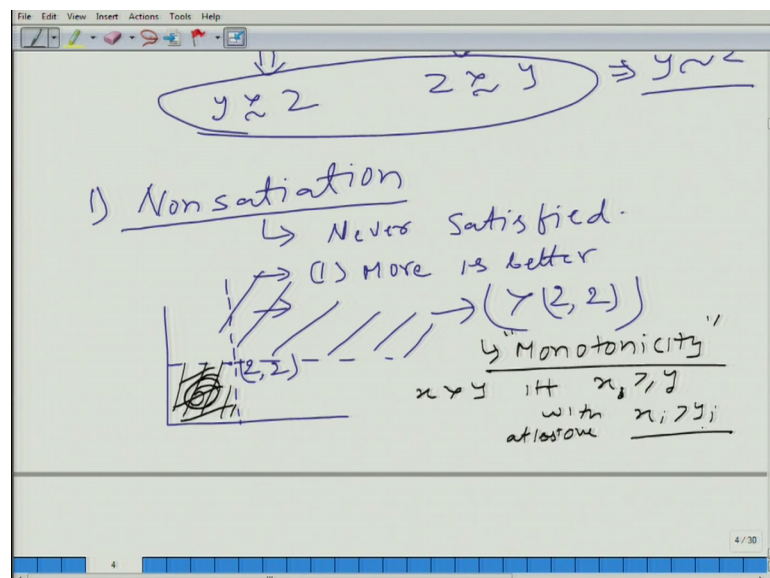 File Edit View Insert Actions Tools Help
y ≿ z z ≿ y ⇒ y ~ z
1) Nonsatiation
↳ Never satisfied.
→ (1) More is better
→ (≻ (2, 2))
(2, 2)
↳ "Monotonicity"
x ≻ y iff x ≥ y
with x_i > y_i
atleastone
4 / 30
4